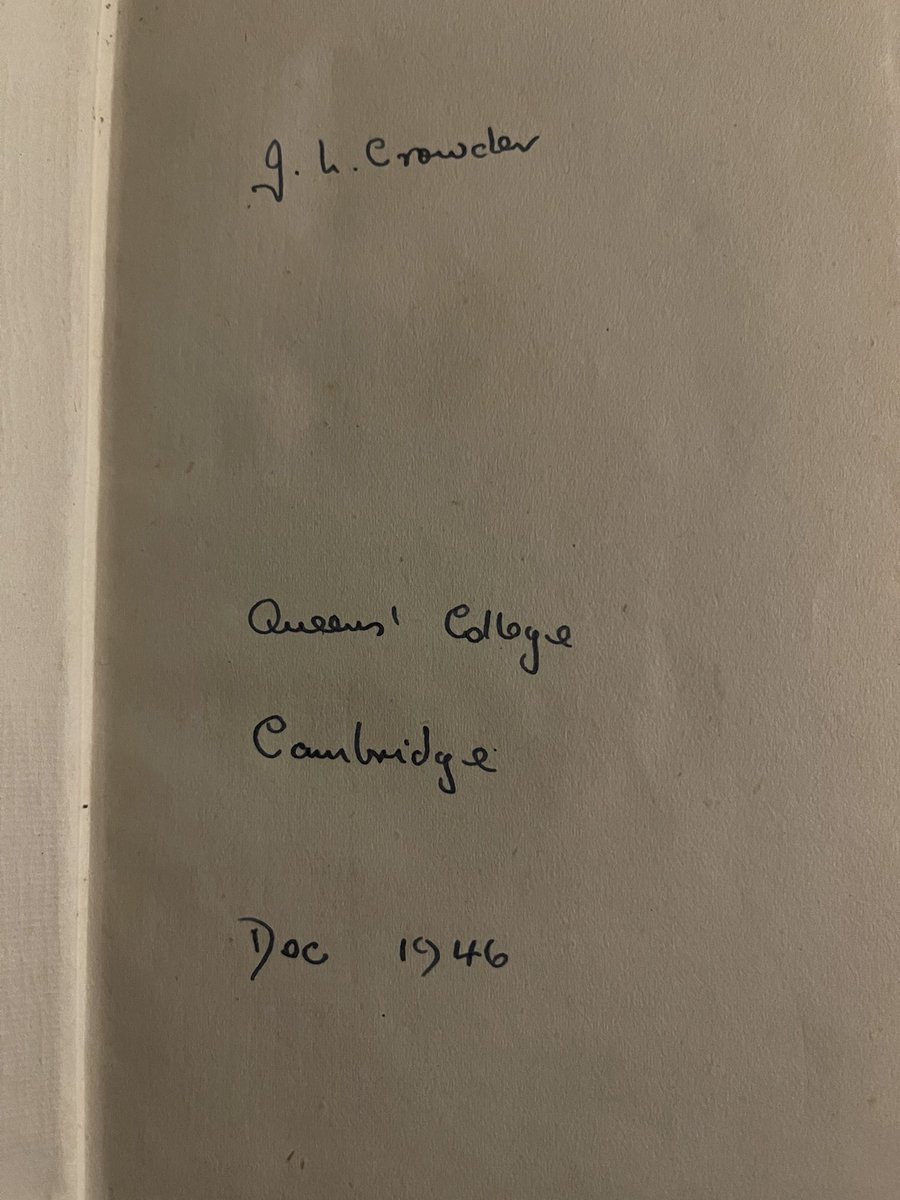 J. H. Crowder
Queens' College
Cambridge
Dec 1946